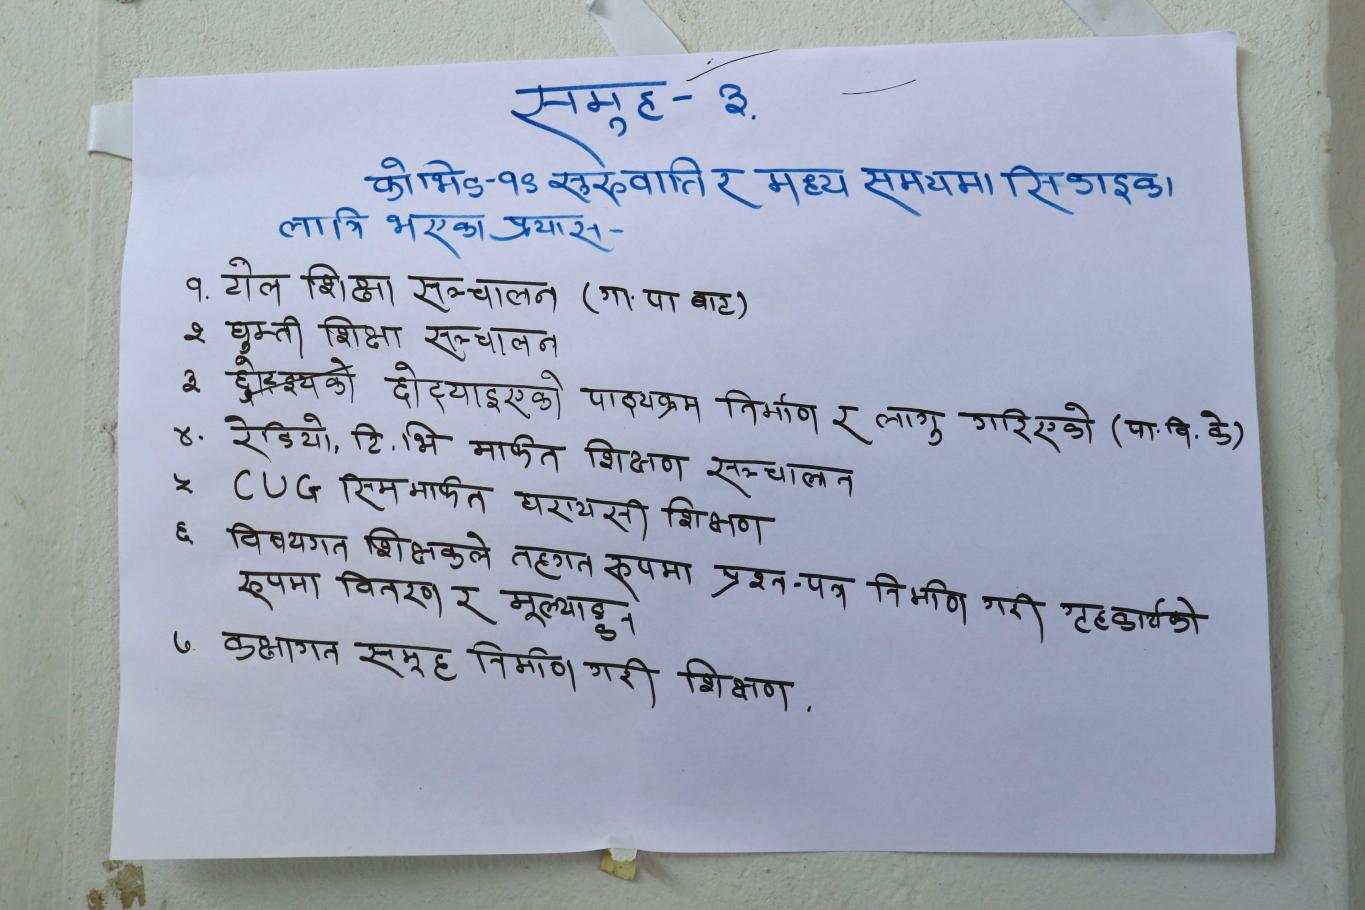 समुह - ३.
कोभिड-१९ सुरुवाति र मध्य समयमा सिकाइका
लागि भएका प्रयास -
१. टोल शिक्षा सञ्चालन (गा. पा बाट)
२ घुम्ती शिक्षा सञ्चालन
३ छोट्याइएको पाठ्यक्रम निर्माण र लागु गरिएको (पा. वि. के)
४. रेडियो, टि. भि मार्फत शिक्षण सञ्चालन
५ CUG सिममार्फत घरायसी शिक्षण
६ विषयगत शिक्षकले तहगत रूपमा प्रश्न-पत्र निर्माण गरी गृहकार्यको
रूपमा वितरण र मूल्याङ्कन
७. कक्षागत समूह निर्माण गरी शिक्षण .